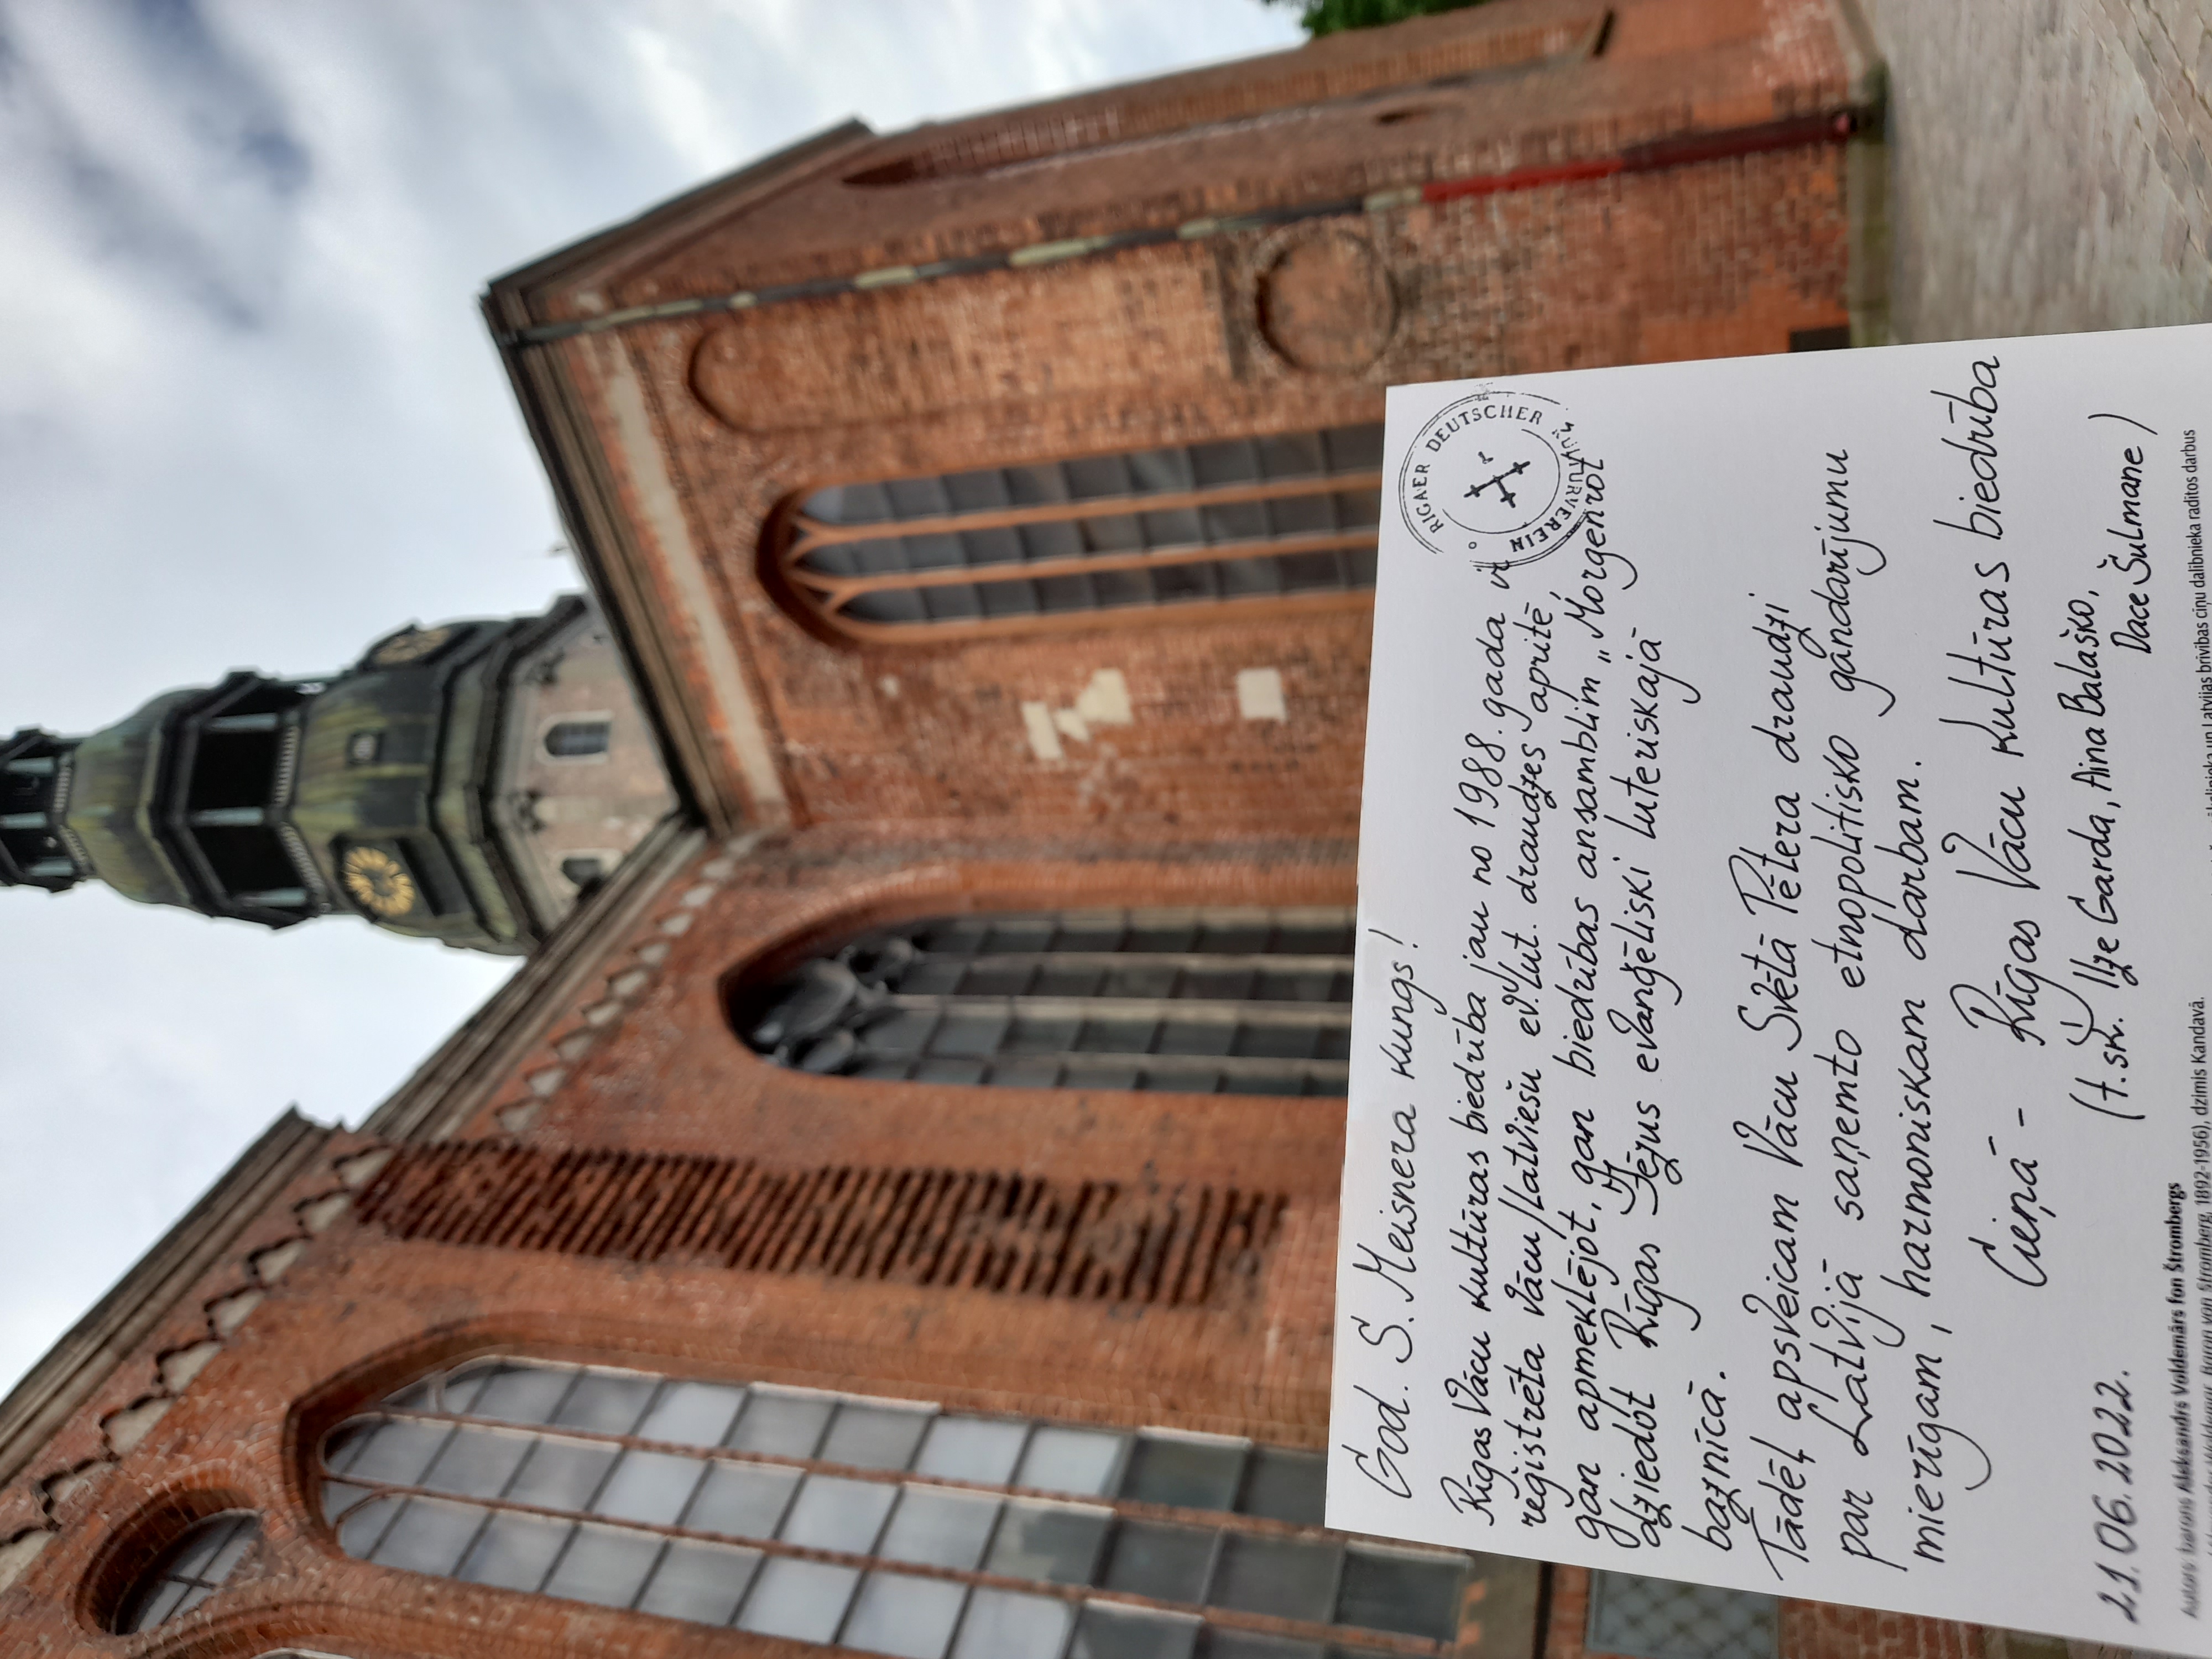 God. S. Meisnera kungs!
RIGAER DEUTSCHER KULTURVEREIN
Rīgas Vācu kultūras biedrība jau no 1988. gada ir
reģistrēta Vācu/Latviešu ev. lut. draudzes apritē,
gan apmeklējot, gan biedrības ansamblim "Morgenrot
dziedot Rīgas Jēzus evaņģēliski luteriskajā
baznīcā.
Tādēļ apsveicam Vācu Svētā Pētera draudzi
par Latvijā saņemto etnopolitisko gandarījumu
mierīgam, harmoniskam darbam.
Cieņā - Rīgas Vācu kultūras biedrība
(t.sk. Ilze Garda, Aina Balaško,
Dace Šulmane)
21.06.2022.
Autors: barons Aleksandrs Voldemārs fon Štrombergs
Baron von Stromberg, 1892-1956), dzimis Kandavā.
un Latvijas brīvības cīņu dalībnieka radītos darbus